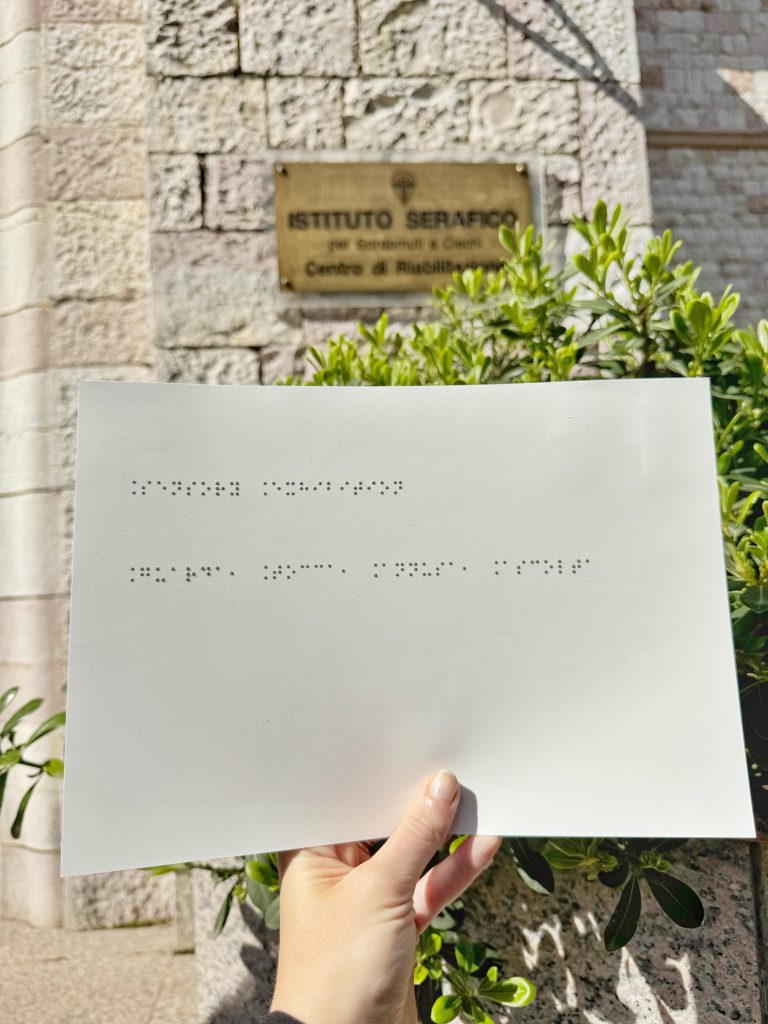 ISTITUTO SERAFICO
per Sordomuti e Ciechi
Centro di Riabilitazione
⠨⠎⠑⠝⠎⠕⠗⠽ ⠨⠑⠭⠓⠊⠃⠊⠞⠊⠕⠝
⠨⠛⠥⠁⠗⠙⠁⠂ ⠨⠞⠕⠉⠉⠁⠂ ⠨⠁⠝⠝⠥⠎⠁⠂ ⠨⠁⠎⠉⠕⠇⠞⠁